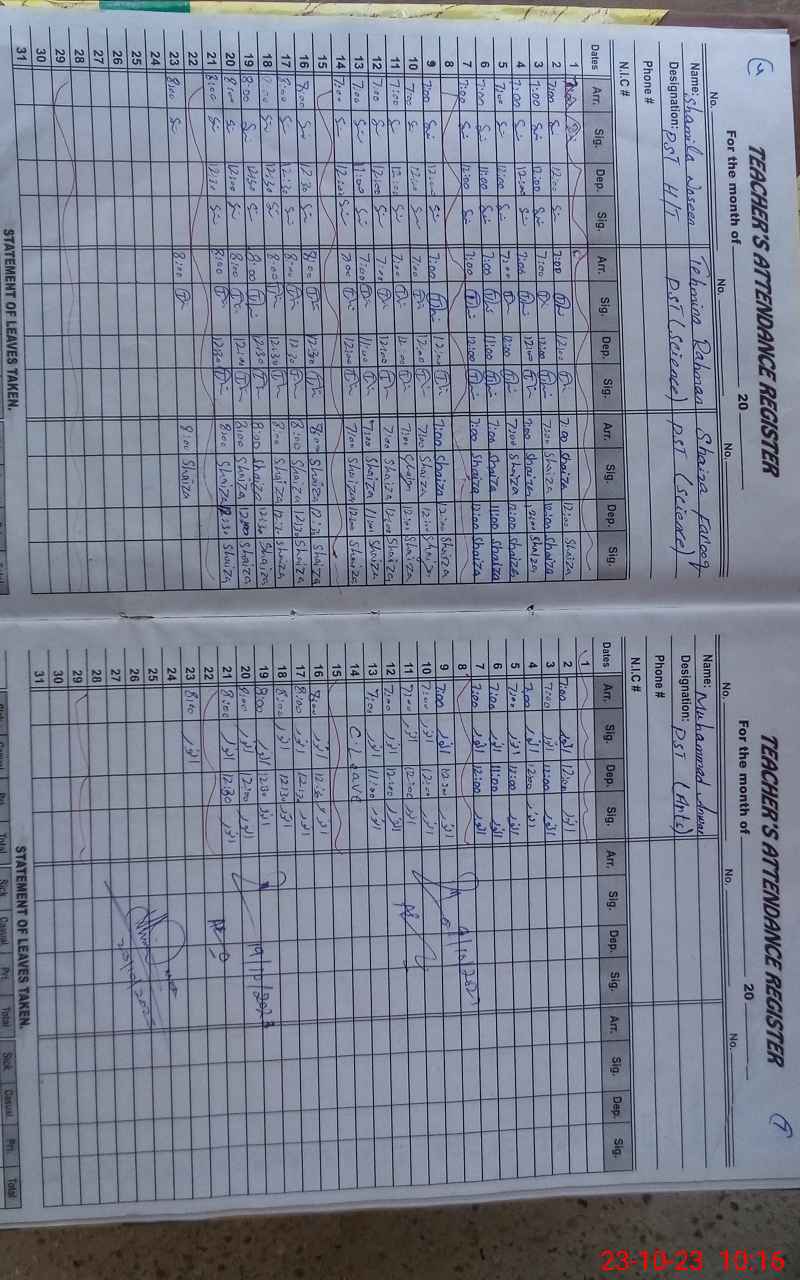 TEACHER'S ATTENDANCE REGISTER
For the month of 20
No. No. No.
Name: Shamila Naseen Tehmina Rahman Shaiza Farooq
Designation: PST H/T PST (Science) PST (Science)
Phone #
N.I.C #
Dates Arr. Sig. Dep. Sig. Arr. Sig. Dep. Sig. Arr. Sig. Dep. Sig.
1
2 7:00 12:00 7:00 12:00 7:00 Shaiza 12:00 Shaiza
3 7:00 12:00 7:00 12:00 7:00 Shaiza 12:00 Shaiza
4 7:00 12:00 7:00 12:00 7:00 Shaiza 12:00 Shaiza
5 7:00 12:00 7:00 12:00 7:00 Shaiza 12:00 Shaiza
6 7:00 11:00 7:00 11:00 7:00 Shaiza 11:00 Shaiza
7 7:00 12:00 7:00 12:00 7:00 Shaiza 12:00 Shaiza
8
9 7:00 12:00 7:00 12:00 7:00 Shaiza 12:00 Shaiza
10 7:00 12:00 7:00 12:00 7:00 Shaiza 12:00
11 7:00 12:00 7:00 12:00 7:00 12:00 Shaiza
12 7:00 12:00 7:00 12:00 7:00 Shaiza 12:00 Shaiza
13 7:00 11:00 7:00 11:00 7:00 Shaiza 11:00 Shaiza
14 7:00 12:00 7:00 12:00 7:00 Shaiza 12:00 Shaiza
15
16 8:00 12:30 8:00 12:30 8:00 Shaiza 12:30 Shaiza
17 8:00 12:30 8:00 12:30 8:00 Shaiza 12:30 Shaiza
18 8:00 12:30 8:00 12:30 8:00 Shaiza 12:30 Shaiza
19 8:00 12:30 8:00 12:30 8:00 Shaiza 12:30 Shaiza
20 8:00 12:00 8:00 12:00 8:00 Shaiza 12:00 Shaiza
21 8:00 12:30 8:00 12:30 8:00 Shaiza 12:30 Shaiza
22
23 8:00 8:00 8:00 Shaiza
24
25
26
27
28
29
30
31
STATEMENT OF LEAVES TAKEN.
TEACHER'S ATTENDANCE REGISTER
For the month of 20
No. No. No.
Name: Muhammad Anwar
Designation: PST (Arts)
Phone #
N.I.C #
Dates Arr. Sig. Dep. Sig. Arr. Sig. Dep. Sig. Arr. Sig. Dep. Sig.
1
2 7:00 انور 12:00 انور
3 7:00 انور 12:00 انور
4 7:00 انور 12:00 انور
5 7:00 انور 12:00 انور
6 7:00 انور 11:00 انور
7 7:00 انور 12:00 انور
8
9 7:00 انور 12:00 انور 9/10/2023
10 7:00 انور 12:00 انور
11 7:00 انور 12:00 انور
12 7:00 انور 12:00 انور
13 7:00 انور 11:00 انور
14 C. Leave
15
16 8:00 انور 12:30 انور
17 8:00 انور 12:30 انور
18 8:00 انور 12:30 انور
19 8:00 انور 12:30 انور 19/10/2023
20 8:00 انور 12:00 انور
21 8:00 انور 12:30 انور
22
23 8:00 انور
24
25
26
27
28
29
30
31
STATEMENT OF LEAVES TAKEN.
Sick Casual Pri. Total Sick Casual Pri. Total
23-10-23 10:16